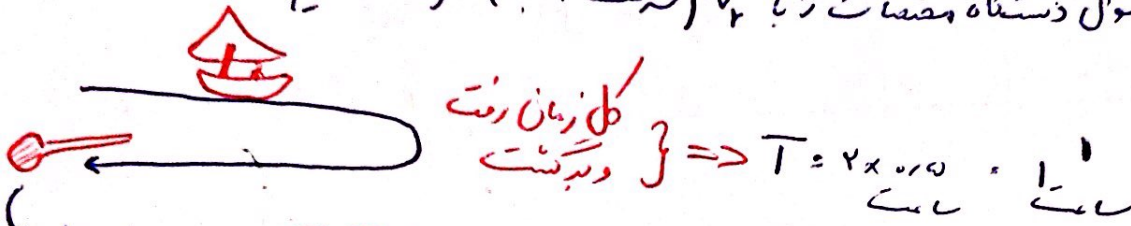 دستگاه مختصات را با V₂
کل زمان رفت
وبرگشت } => T = ۲×۰/۵ = ۱
ساعت ساعت